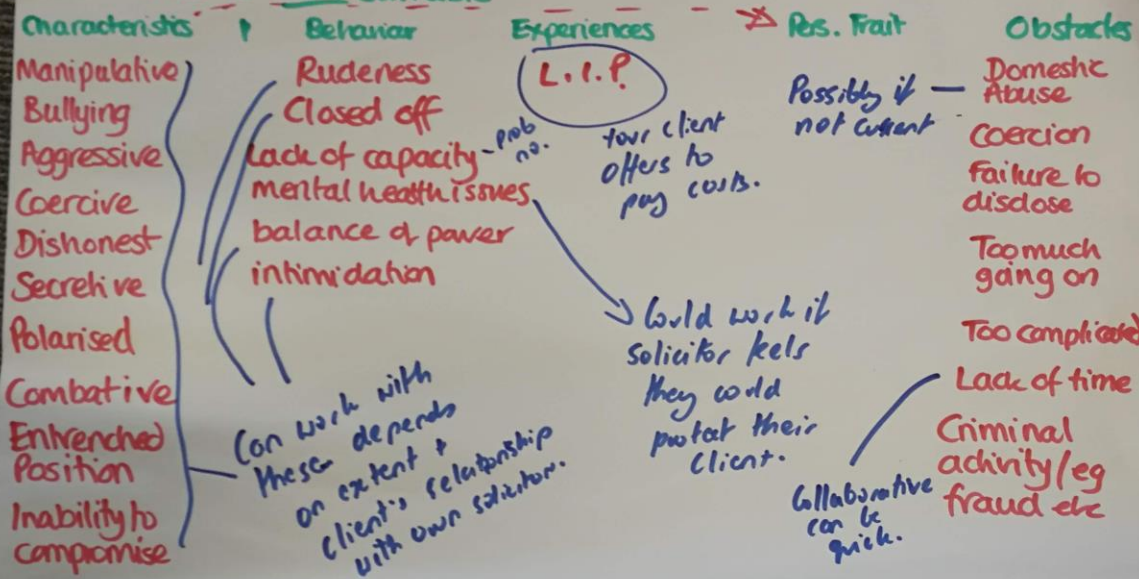 Characteristics
Manipulative
Bullying
Aggressive
Coercive
Dishonest
Secretive
Polarised
Combative
Entrenched
Position
Inability to
compromise
Behaviour
Rudeness
Closed off
Lack of capacity - prob
no.
mental health issues
balance of power
intimidation
Can work with
these depends
on extent +
client's relationship
with own solicitor.
Experiences
L.I.P.
Your client
offers to
pay costs.
Could work if
solicitor feels
they could
protect their
client.
Pers. Trait
Possibly if
not current
Obstacles
Domestic
Abuse
Coercion
Failure to
disclose
Too much
going on
Too complicated
Lack of time
Criminal
activity/eg
fraud etc
Collaborative
can be
quick.